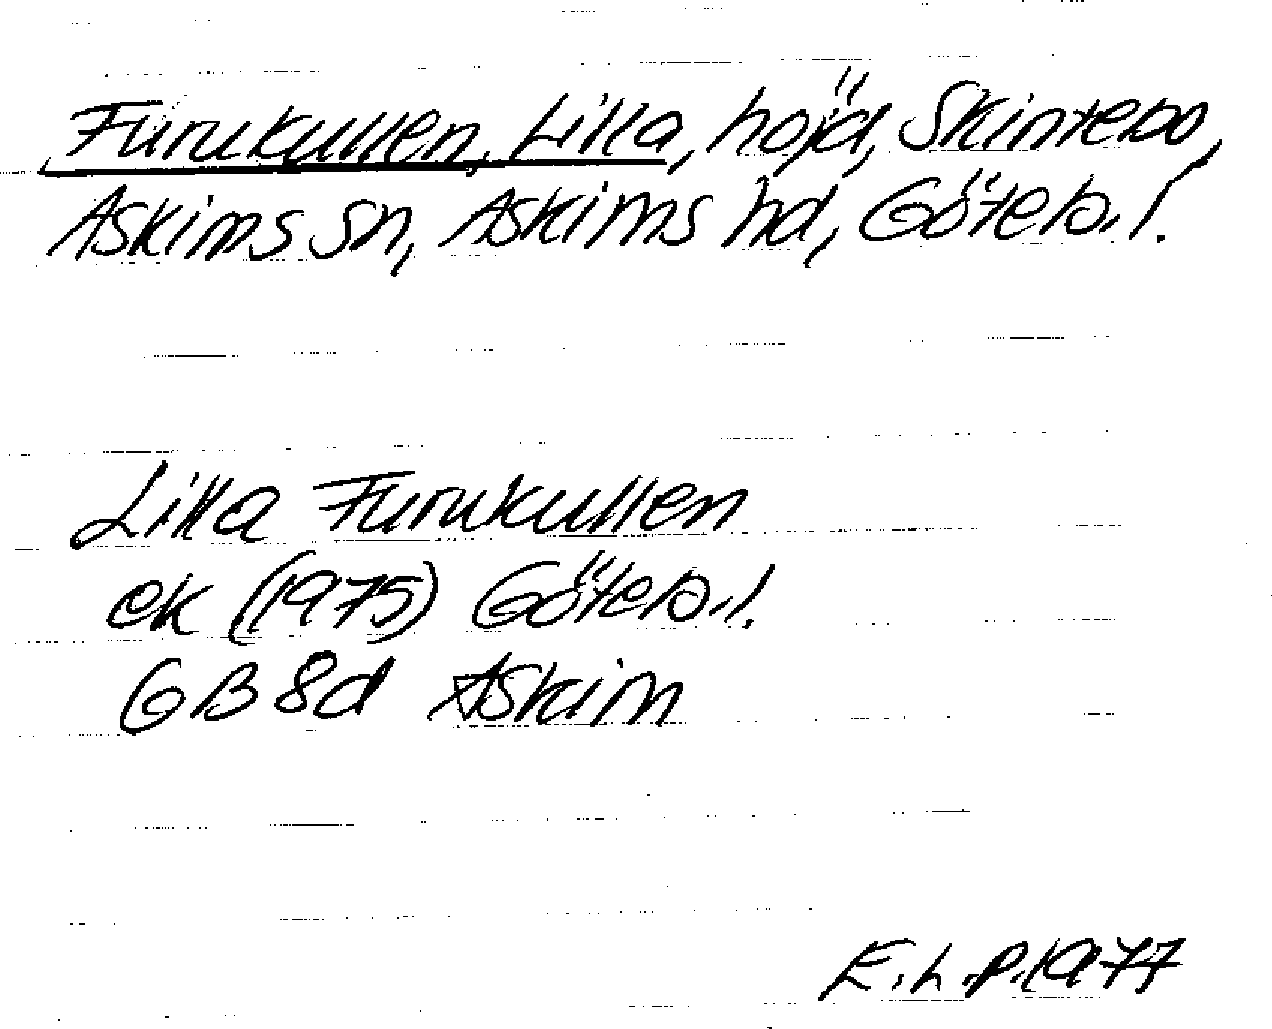 Furukullen, Lilla, höjd, Skintebo,
Askims sn, Askims hd, Göteb. l.
Lilla Furukullen
ek (1975) Göteb. l.
GB 8d Askim
E. L. P. 1977